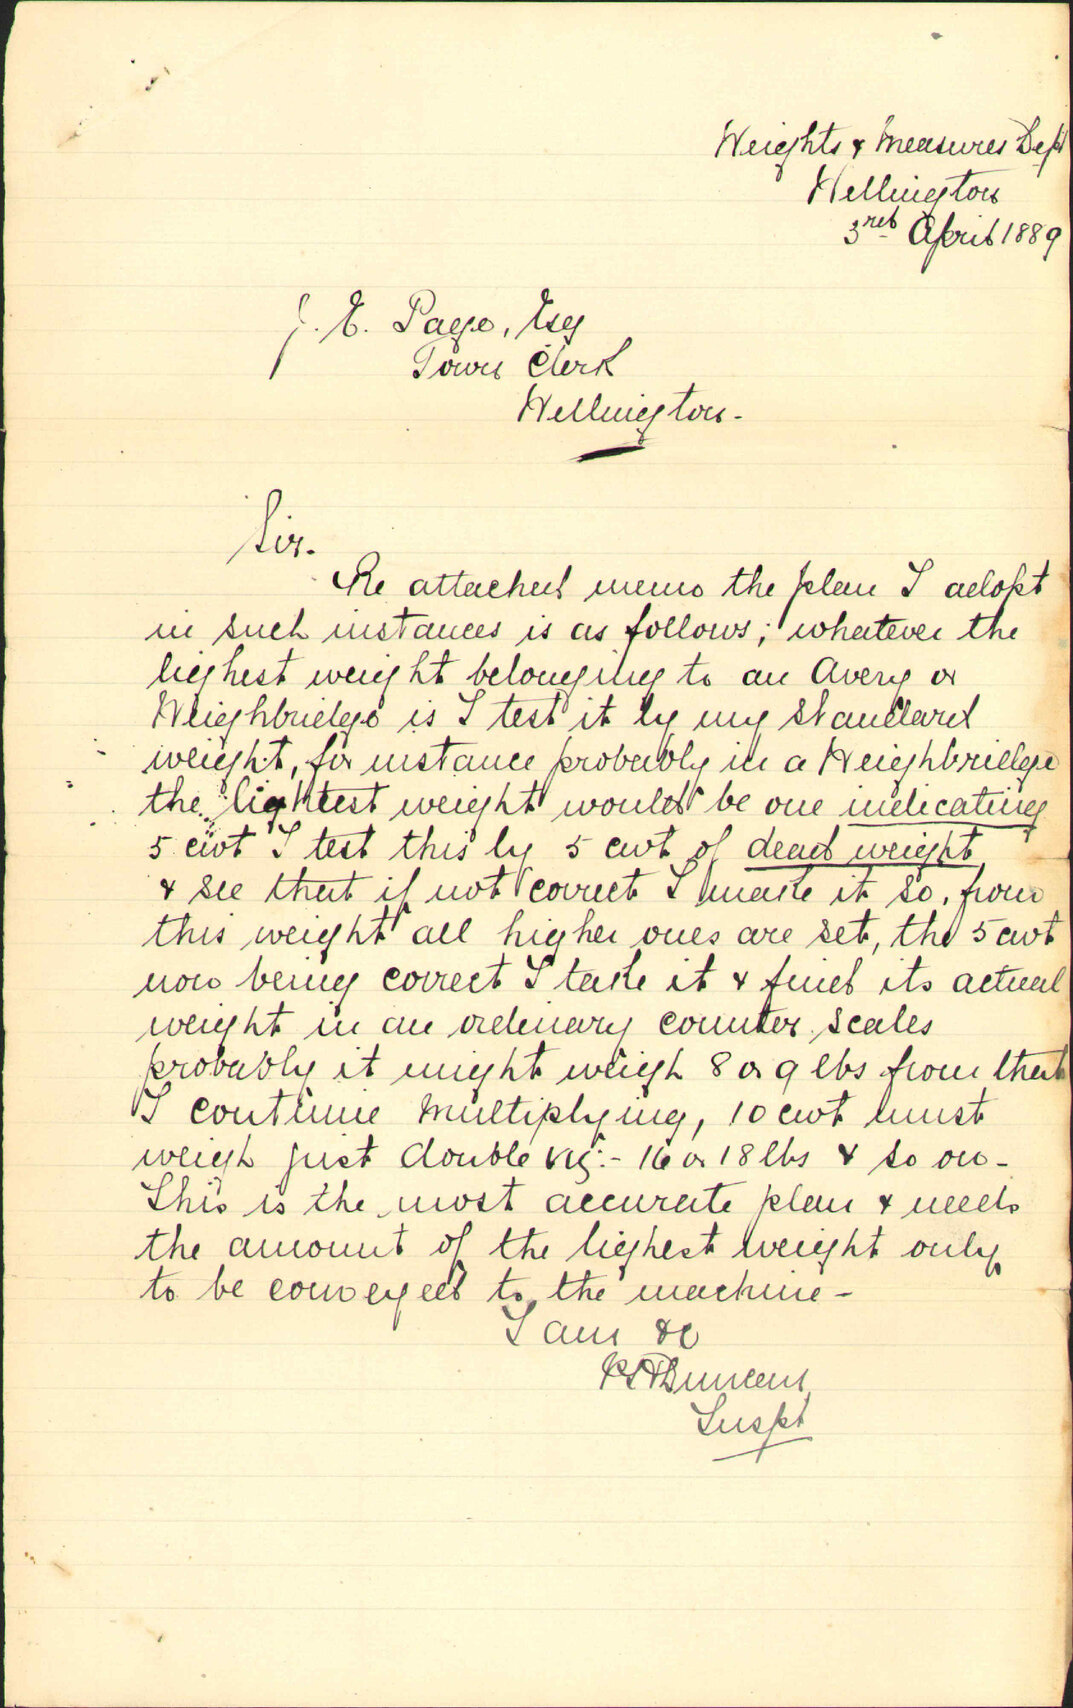 Weights & Measures Dept
Wellington
3rd April 1889
J. E. Page, Esq
Town Clerk
Wellington-
Sir.
Re attached memo the plan I adopt
in such instances is as follows; whatever the
lighest weight belonging to an Avery or
Weighbridge is I test it by my standard
weight, for instance probably in a Weighbridge
the lightest weight would be one indicating
5 cwt I test this by 5 cwt of dead weight
& see that if not correct I make it so, from
this weight all higher ones are set, the 5 cwt
now being correct I take it & find its actual
weight in an ordinary counter scales
probably it might weigh 8 or 9 lbs from that
I continue multiplying, 10 cwt must
weigh just double viz:- 16 or 18 lbs & so on-
This is the most accurate plan & needs
the amount of the lighest weight only
to be conveyed to the machine-
I am &c
Duncan
Inspt